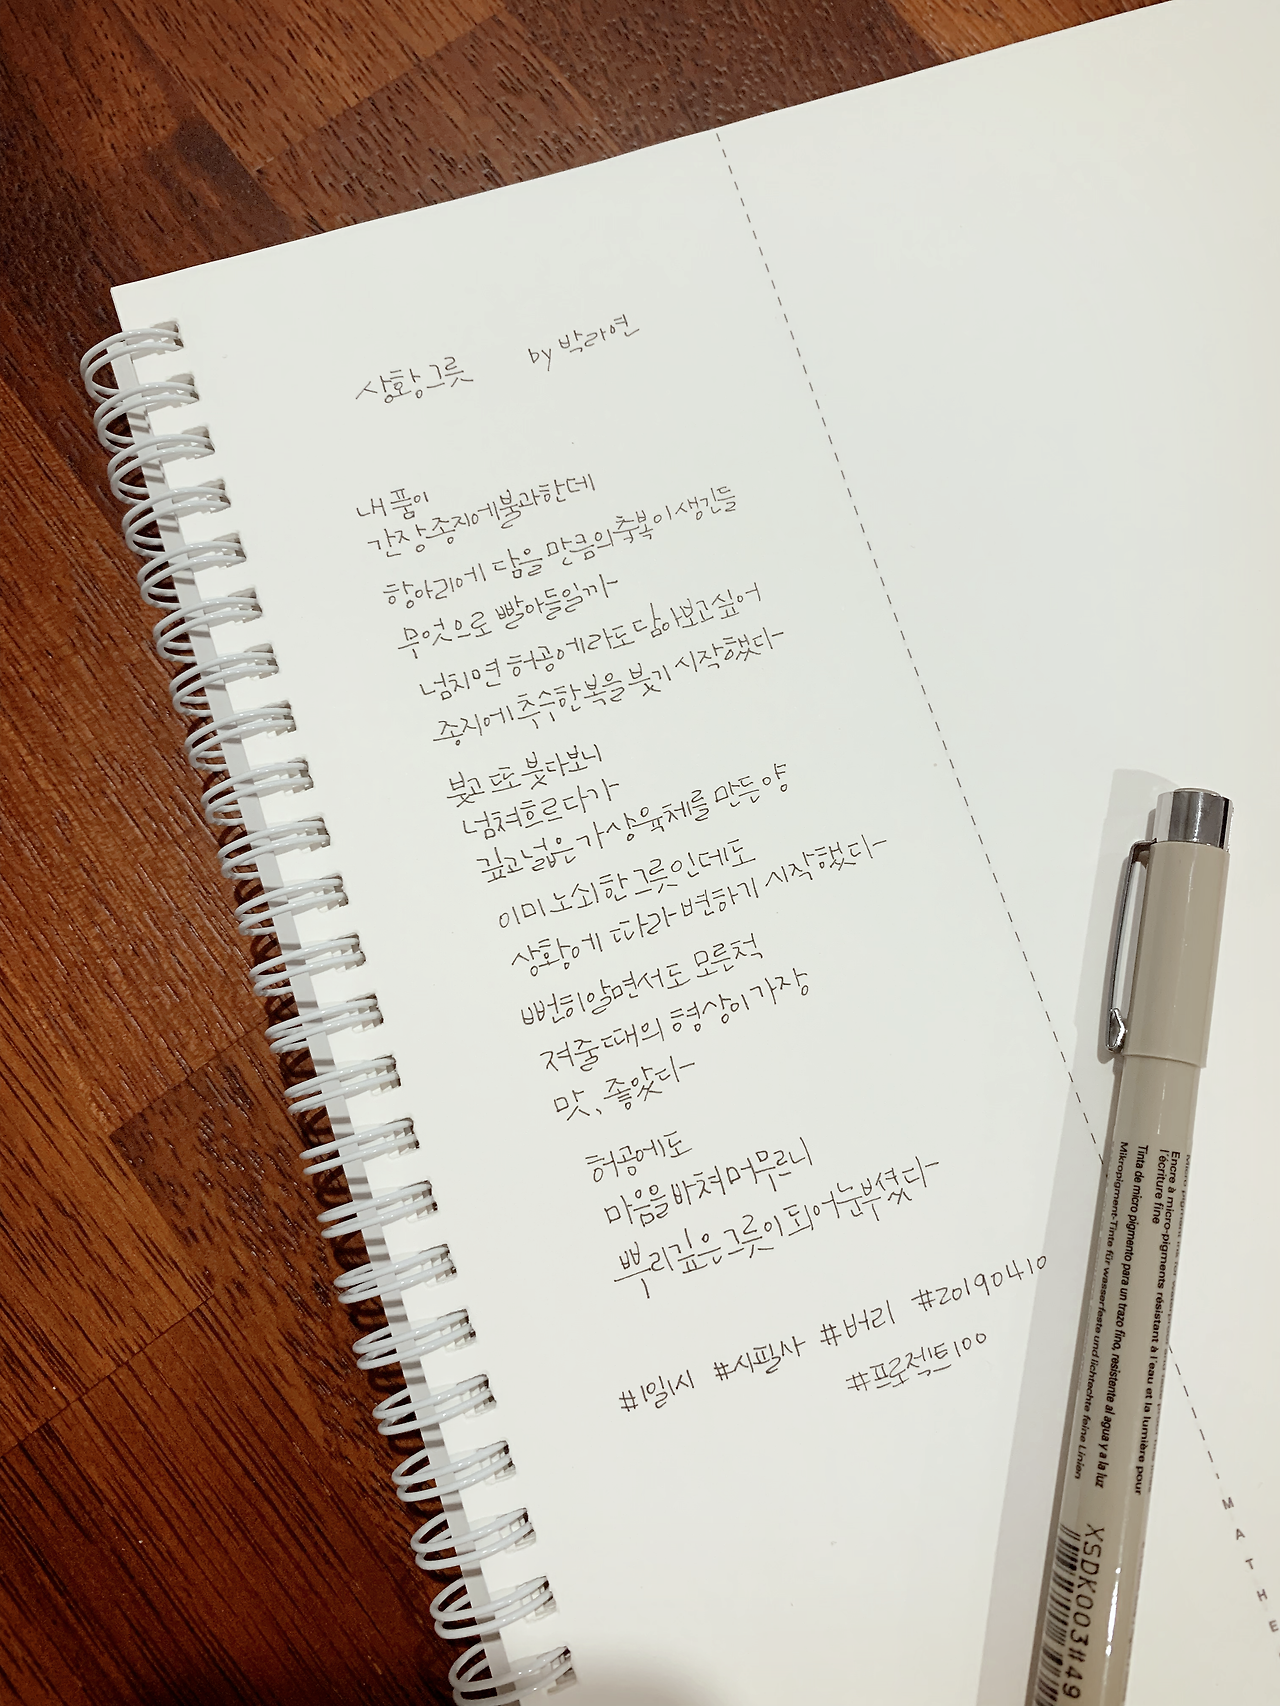 상황그릇 by 박라연
내 품이
간장 종지에 불과한데
항아리에 담을 만큼의 축복이 생긴들
무엇으로 빨아들일까
넘치면 허공에라도 담아보고 싶어
종지에 추수한 복을 붓기 시작했다
붓고 또 붓다보니
넘쳐흐르다가
깊고 넓은 가상 육체를 만든 양
이미 노쇠한 그릇인데도
상황에 따라 변하기 시작했다
뻔히 알면서도 모른 척
져줄 때의 형상이 가장
맛, 좋았다
허공에도
마음을 바쳐 머무르니
뿌리 깊은 그릇이 되어 눈부셨다
#1일1시 #시필사 #버리 #20190410
#프로젝트100
Encre à micro-pigments résistant à l'eau et la lumière pour
l'écriture fine
Tinta de micro pigmento para un trazo fino, resistente al agua y a la luz
Mikropigment-Tinte für wasserfeste und lichtechte feine Linien
XSDK003#49
MATHE